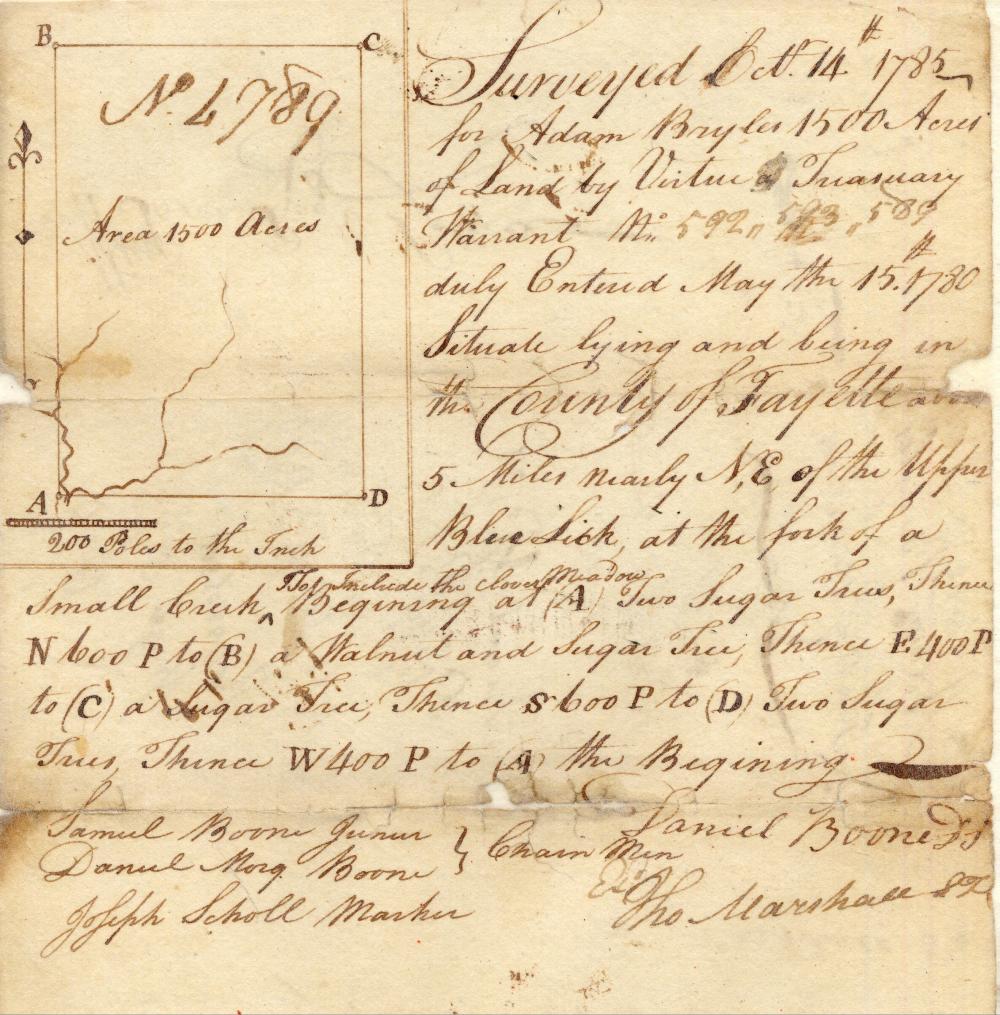 B
C
No. 4789
Area 1500 Acres
A
D
200 Poles to the Inch
Surveyed Oct. 14th 1785
for Adam Bryles 1500 Acres
of Land by Virtue of Treasuary
Warrant No. 592,, 593,, 589
duly Entered May the 15th. 1780
Situate lying and being in
the County of Fayette
5 Miles nearly N,E, of the Upper
Blue Lick, at the fork of a
Small Creek, ^ To Include the clover Meadow Begining at (A) Two Sugar Trees, Thence
N 600 P to (B) a Walnut and Sugar Tree, Thence E 400 P
to (C) a Sugar Tree, Thence S 600 P to (D) Two Sugar
Trees, Thence W 400 P to (A) the Begining
Samuel Boone Juner } Chain Men
Daniel Morg Boone
Joseph Scholl Marker
Daniel Boone DS
Tho Marshall